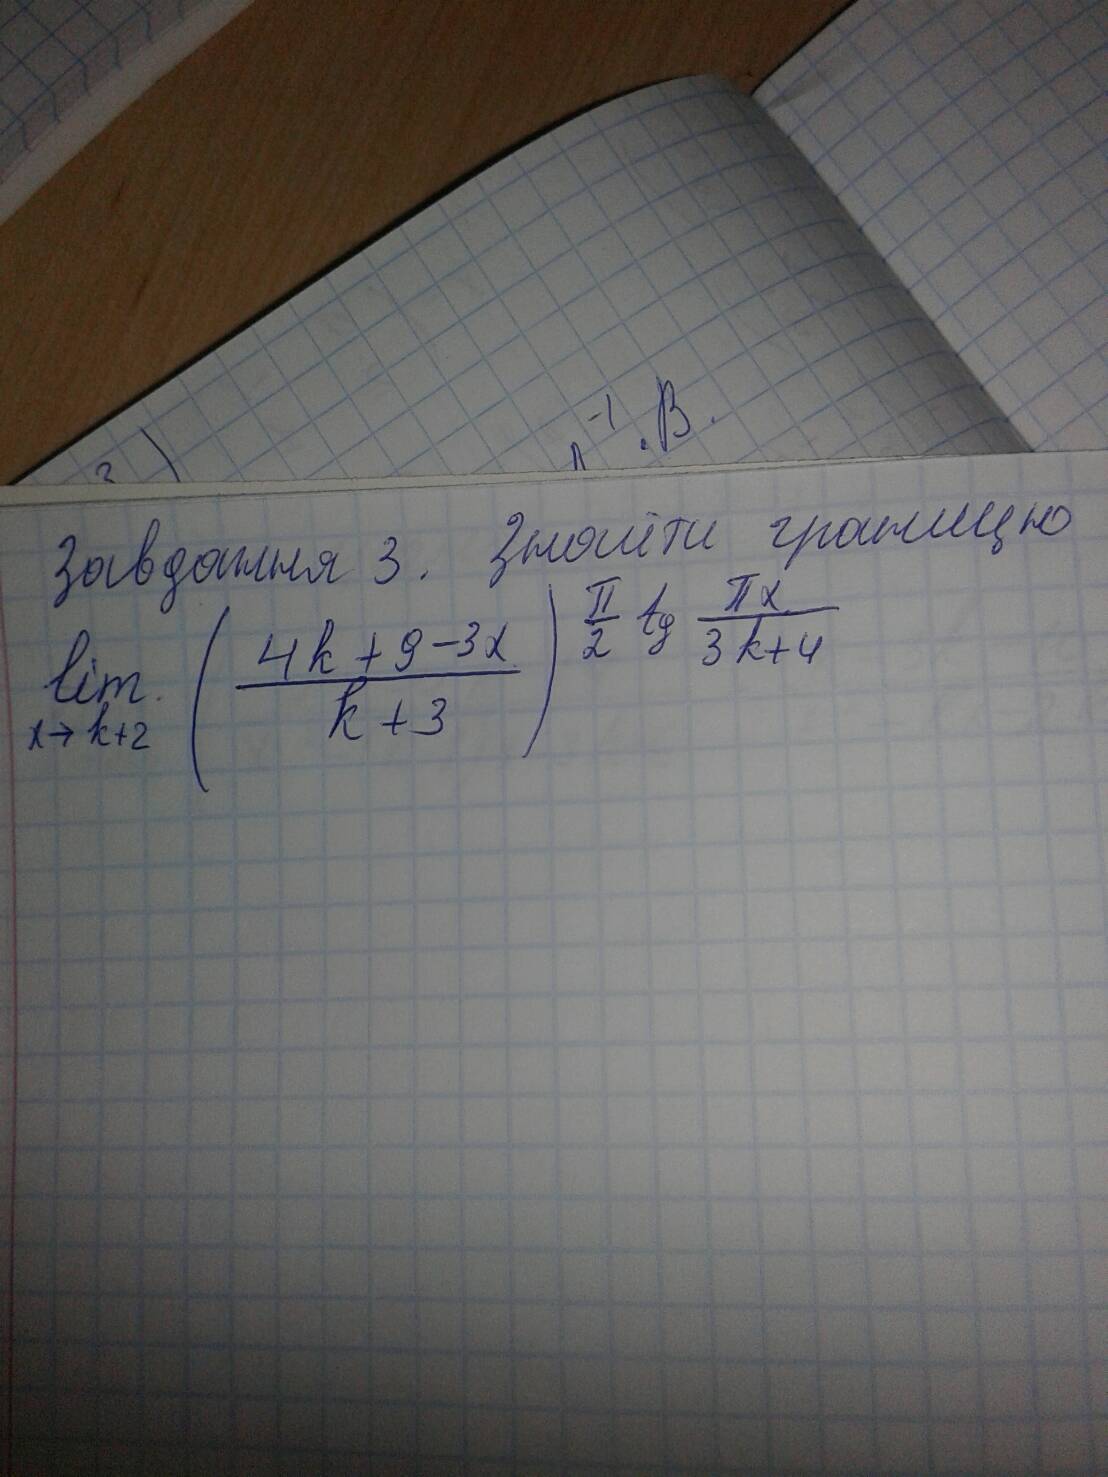 3 )
A⁻¹ · B.
Завдання 3. Знайти границю
lim x→k+2 ( (4k+9-3x) / (k+3) ) ^ (π/2 tg πx/(3k+4))